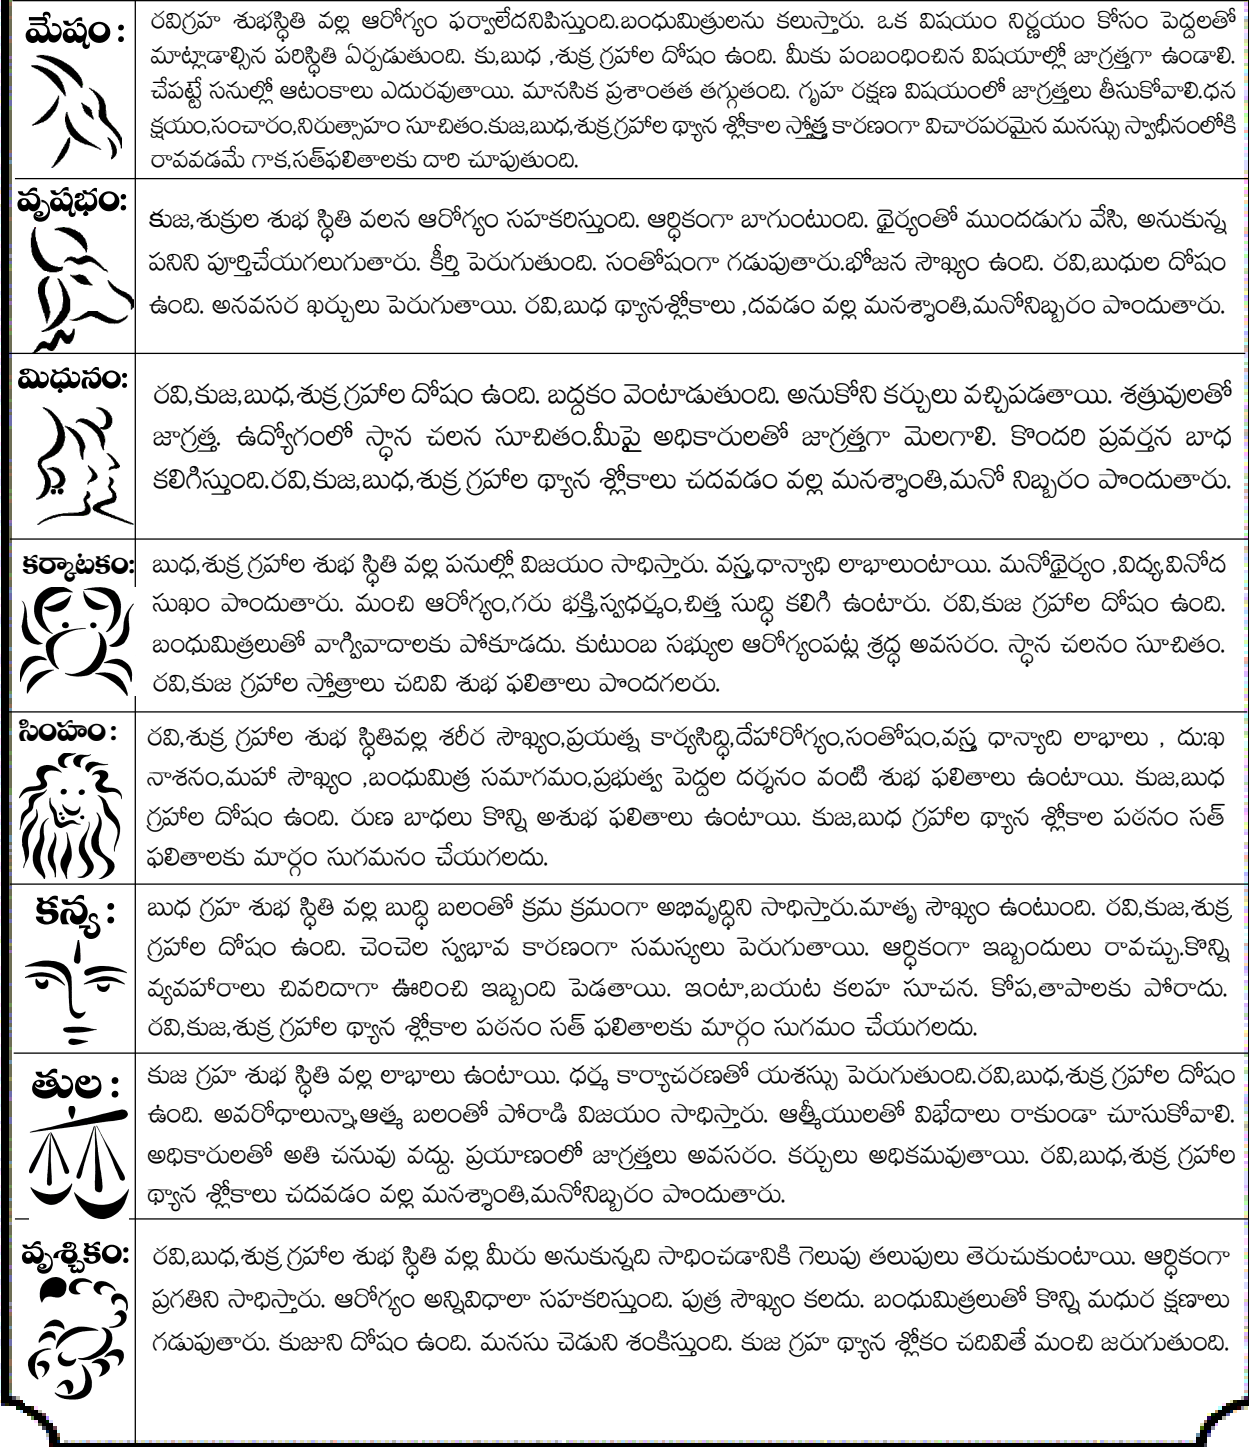 మేషం :
రవిగ్రహ శుభస్థితి వల్ల ఆరోగ్యం ఫర్వాలేదనిపిస్తుంది.బంధుమిత్రులను కలుస్తారు. ఒక విషయం నిర్ణయం కోసం పెద్దలతో
మాట్లాడాల్సిన పరిస్థితి ఏర్పడుతుంది. కు,బుధ ,శుక్ర గ్రహాల దోషం ఉంది. మీకు పంబంధించిన విషయాల్లో జాగ్రత్తగా ఉండాలి.
చేపట్టే సనుల్లో ఆటంకాలు ఎదురవుతాయి. మానసిక ప్రశాంతత తగ్గుతంది. గృహ రక్షణ విషయంలో జాగ్రత్తలు తీసుకోవాలి.ధన
క్షయం,సంచారం,నిరుత్సాహం సూచితం.కుజ,బుధ,శుక్ర,గ్రహాల ధ్యాన శ్లోకాల స్తోత్త కారణంగా విచారపరమైన మనస్సు స్వాధీనంలోకి
రావవడమే గాక,సత్‌ఫలితాలకు దారి చూపుతుంది.
వృషభం:
కుజ,శుక్రుల శుభ స్థితి వలన ఆరోగ్యం సహకరిస్తుంది. ఆర్థికంగా బాగుంటుంది. థైర్యంతో ముందడుగు వేసి, అనుకున్న
పనిని పూర్తిచేయగలుగుతారు. కీర్తి పెరుగుతుంది. సంతోషంగా గడుపుతారు.భోజన సౌఖ్యం ఉంది. రవి,బుధుల దోషం
ఉంది. అనవసర ఖర్చులు పెరుగుతాయి. రవి,బుధ ధ్యానశ్లోకాలు ,దవడం వల్ల మనశ్శాంతి,మనోనిబ్బరం పొందుతారు.
మిధునం:
రవి,కుజ,బుధ,శుక్ర గ్రహాల దోషం ఉంది. బద్దకం వెంటాడుతుంది. అనుకోని కర్చులు వచ్చిపడతాయి. శత్రువులతో
జాగ్రత్త. ఉద్యోగంలో స్థాన చలన సూచితం.మీపై అధికారులతో జాగ్రత్తగా మెలగాలి. కొందరి ప్రవర్తన బాధ
కలిగిస్తుంది.రవి,కుజ,బుధ,శుక్ర గ్రహాల ధ్యాన శ్లోకాలు చదవడం వల్ల మనశ్శాంతి,మనో నిబ్బరం పొందుతారు.
కర్కాటకం:
బుధ,శుక్ర గ్రహాల శుభ స్థితి వల్ల పనుల్లో విజయం సాధిస్తారు. వస్త్ర,ధాన్యాధి లాభాలుంటాయి. మనోథైర్యం ,విద్య,వినోద
సుఖం పొందుతారు. మంచి ఆరోగ్యం,గరు భక్తి,స్వధర్మం,చిత్త సుద్ధి కలిగి ఉంటారు. రవి,కుజ గ్రహాల దోషం ఉంది.
బంధుమిత్రలుతో వాగ్వివాదాలకు పోకూడదు. కుటుంబ సభ్యుల ఆరోగ్యంపట్ల శ్రద్ధ అవసరం. స్థాన చలనం సూచితం.
రవి,కుజ గ్రహాల స్తోత్రాలు చదివి శుభ ఫలితాలు పొందగలరు.
సింహం :
రవి,శుక్ర గ్రహాల శుభ స్థితివల్ల శరీర సౌఖ్యం,ప్రయత్న కార్యసిద్ధి,దేహారోగ్యం,సంతోషం,వస్త్ర ధాన్యాది లాభాలు , దు:ఖ
నాశనం,మహా సౌఖ్యం ,బంధుమిత్ర సమాగమం,ప్రభుత్వ పెద్దల దర్శనం వంటి శుభ ఫలితాలు ఉంటాయి. కుజ,బుధ
గ్రహాల దోషం ఉంది. రుణ బాధలు కొన్ని అశుభ ఫలితాలు ఉంటాయి. కుజ,బుధ గ్రహాల ధ్యాన శ్లోకాల పఠనం సత్
ఫలితాలకు మార్గం సుగమనం చేయగలదు.
కన్య :
బుధ గ్రహ శుభ స్థితి వల్ల బుద్ధి బలంతో క్రమ క్రమంగా అభివృద్ధిని సాధిస్తారు.మాతృ సౌఖ్యం ఉంటుంది. రవి,కుజ,శుక్ర
గ్రహాల దోషం ఉంది. చెంచెల స్వభావ కారణంగా సమస్యలు పెరుగుతాయి. ఆర్థికంగా ఇబ్బందులు రావచ్చు.కొన్ని
వ్యవహారాలు చివరిదాగా ఊరించి ఇబ్బంది పెడతాయి. ఇంటా,బయట కలహ సూచన. కోప,తాపాలకు పోరాదు.
రవి,కుజ,శుక్ర గ్రహాల ధ్యాన శ్లోకాల పఠనం సత్ ఫలితాలకు మార్గం సుగమం చేయగలదు.
తుల :
కుజ గ్రహ శుభ స్థితి వల్ల లాభాలు ఉంటాయి. ధర్మ కార్యాచరణతో యశస్సు పెరుగుతుంది.రవి,బుధ,శుక్ర గ్రహాల దోషం
ఉంది. అవరోధాలున్నా,ఆత్మ బలంతో పోరాడి విజయం సాధిస్తారు. ఆత్మీయులతో విభేదాలు రాకుండా చూసుకోవాలి.
అధికారులతో అతి చనువు వద్దు. ప్రయాణంలో జాగ్రత్తలు అవసరం. కర్చులు అధికమవుతాయి. రవి,బుధ,శుక్ర గ్రహాల
ధ్యాన శ్లోకాలు చదవడం వల్ల మనశ్శాంతి,మనోనిబ్బరం పొందుతారు.
వృశ్చికం:
రవి,బుధ,శుక్ర గ్రహాల శుభ స్థితి వల్ల మీరు అనుకున్నది సాధించడానికి గెలుపు తలుపులు తెరుచుకుంటాయి. ఆర్థికంగా
ప్రగతిని సాధిస్తారు. ఆరోగ్యం అన్నివిధాలా సహకరిస్తుంది. పుత్ర సౌఖ్యం కలదు. బంధుమిత్రలుతో కొన్ని మధుర క్షణాలు
గడుపుతారు. కుజుని దోషం ఉంది. మనసు చెడుని శంకిస్తుంది. కుజ గ్రహ ధ్యాన శ్లోకం చదివితే మంచి జరుగుతుంది.